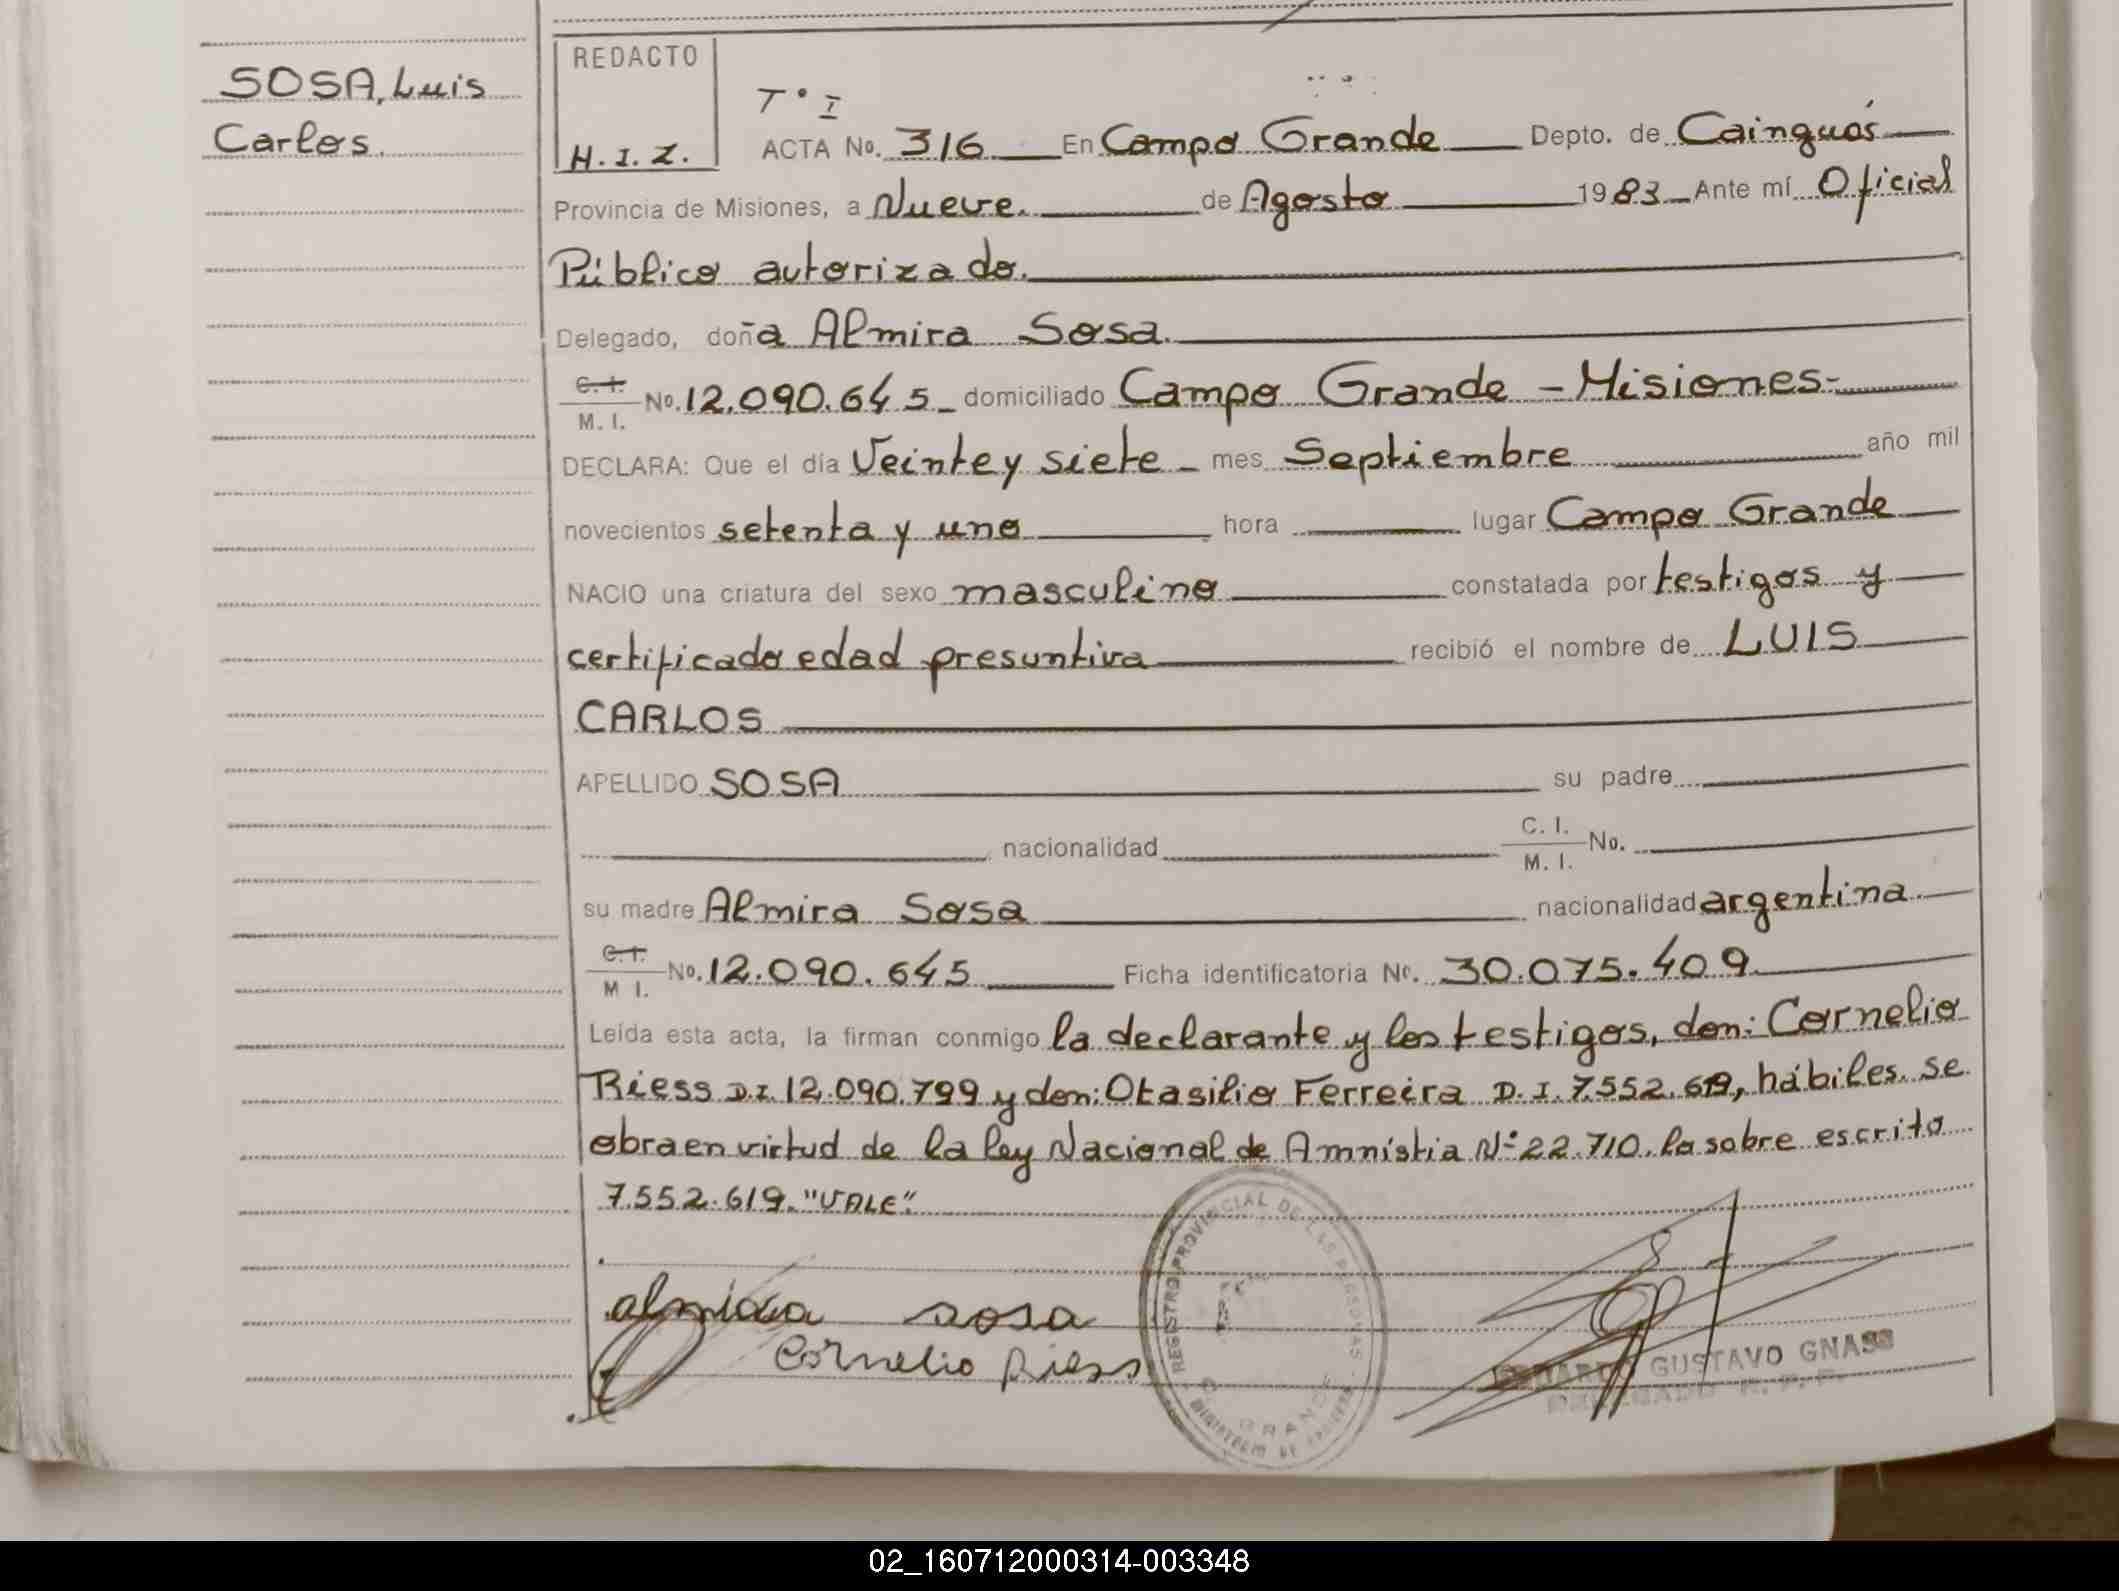 SOSA, Luis
Carlos.
REDACTO
H.I.Z.
T° I
ACTA No. 316 En Campo Grande Depto. de Cainguás
Provincia de Misiones, a Nueve. de Agosto 1983 Ante mí Oficial
Público autorizado.
Delegado, doña Almira Sosa.
C.I.
M.I. No. 12.090.645 domiciliado Campo Grande - Misiones-
DECLARA: Que el día Veinte y siete mes Septiembre año mil
novecientos setenta y uno hora lugar Campo Grande
NACIO una criatura del sexo masculino constatada por testigos y
certificado edad presuntiva recibió el nombre de LUIS
CARLOS
APELLIDO SOSA su padre
nacionalidad C. I.
M. I. No.
su madre Almira Sosa nacionalidad argentina.
C.I.
M I. No. 12.090.645 Ficha identificatoria No. 30.075.409
Leída esta acta, la firman conmigo la declarante y los testigos, don: Cornelio
Riess D.I. 12.090.799 y don: Otasilio Ferreira D.I. 7.552.619, hábiles. se
obra en virtud de la ley Nacional de Amnistia N° 22.710. la sobre escrito
7.552.619. "VALE".
almira sosa
Cornelio Riess
REGISTRO PROVINCIAL DE LAS PERSONAS
GRANDE
MINISTERIO DE
GUSTAVO GNASS
DELEGADO R. P. P.
02_160712000314-003348